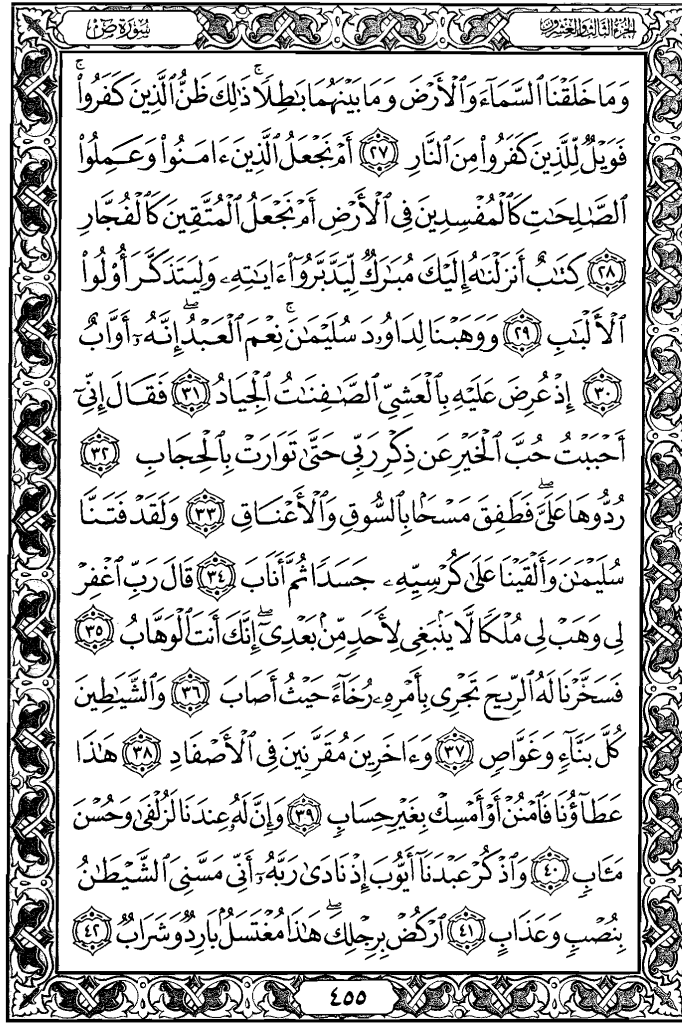 الجزء الثالث والعشرون
سورة ص
وَمَا خَلَقْنَا السَّمَآءَ وَالْأَرْضَ وَمَا بَيْنَهُمَا بَاطِلًا ۚ ذَٰلِكَ ظَنُّ الَّذِينَ كَفَرُوا ۚ
فَوَيْلٌ لِّلَّذِينَ كَفَرُوا مِنَ النَّارِ ٢٧ أَمْ نَجْعَلُ الَّذِينَ ءَامَنُوا وَعَمِلُوا
الصَّٰلِحَٰتِ كَالْمُفْسِدِينَ فِى الْأَرْضِ أَمْ نَجْعَلُ الْمُتَّقِينَ كَالْفُجَّارِ
٢٨ كِتَٰبٌ أَنزَلْنَٰهُ إِلَيْكَ مُبَٰرَكٌ لِّيَدَّبَّرُوٓا ءَايَٰتِهِۦ وَلِيَتَذَكَّرَ أُو۟لُوا
الْأَلْبَٰبِ ٢٩ وَوَهَبْنَا لِدَاوُۥدَ سُلَيْمَٰنَ ۚ نِعْمَ الْعَبْدُ ۖ إِنَّهُۥٓ أَوَّابٌ
٣٠ إِذْ عُرِضَ عَلَيْهِ بِالْعَشِىِّ الصَّٰفِنَٰتُ الْجِيَادُ ٣١ فَقَالَ إِنِّىٓ
أَحْبَبْتُ حُبَّ الْخَيْرِ عَن ذِكْرِ رَبِّى حَتَّىٰ تَوَارَتْ بِالْحِجَابِ ٣٢
رُدُّوهَا عَلَىَّ ۖ فَطَفِقَ مَسْحًۢا بِالسُّوقِ وَالْأَعْنَاقِ ٣٣ وَلَقَدْ فَتَنَّا
سُلَيْمَٰنَ وَأَلْقَيْنَا عَلَىٰ كُرْسِيِّهِۦ جَسَدًا ثُمَّ أَنَابَ ٣٤ قَالَ رَبِّ اغْفِرْ
لِى وَهَبْ لِى مُلْكًا لَّا يَنۢبَغِى لِأَحَدٍ مِّنۢ بَعْدِىٓ ۖ إِنَّكَ أَنتَ الْوَهَّابُ ٣٥
فَسَخَّرْنَا لَهُ الرِّيحَ تَجْرِى بِأَمْرِهِۦ رُخَآءً حَيْثُ أَصَابَ ٣٦ وَالشَّيَٰطِينَ
كُلَّ بَنَّآءٍ وَغَوَّاصٍ ٣٧ وَءَاخَرِينَ مُقَرَّنِينَ فِى الْأَصْفَادِ ٣٨ هَٰذَا
عَطَآؤُنَا فَامْنُنْ أَوْ أَمْسِكْ بِغَيْرِ حِسَابٍ ٣٩ وَإِنَّ لَهُۥ عِندَنَا لَزُلْفَىٰ وَحُسْنَ
مَـَٔابٍ ٤٠ وَاذْكُرْ عَبْدَنَآ أَيُّوبَ إِذْ نَادَىٰ رَبَّهُۥٓ أَنِّى مَسَّنِىَ الشَّيْطَٰنُ
بِنُصْبٍ وَعَذَابٍ ٤١ ارْكُضْ بِرِجْلِكَ ۖ هَٰذَا مُغْتَسَلٌۢ بَارِدٌ وَشَرَابٌ ٤٢
٤٥٥